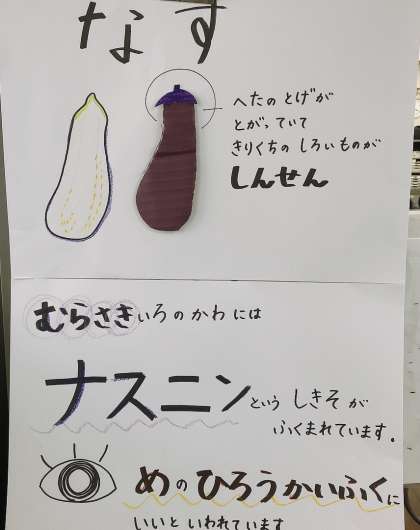 なす
へたの とげが
とがっていて
きりくちの しろいものが
しんせん
むらさきいろのかわには
ナスニンという しきそが
ふくまれています。
めのひろうかいふくに
いいと いわれています